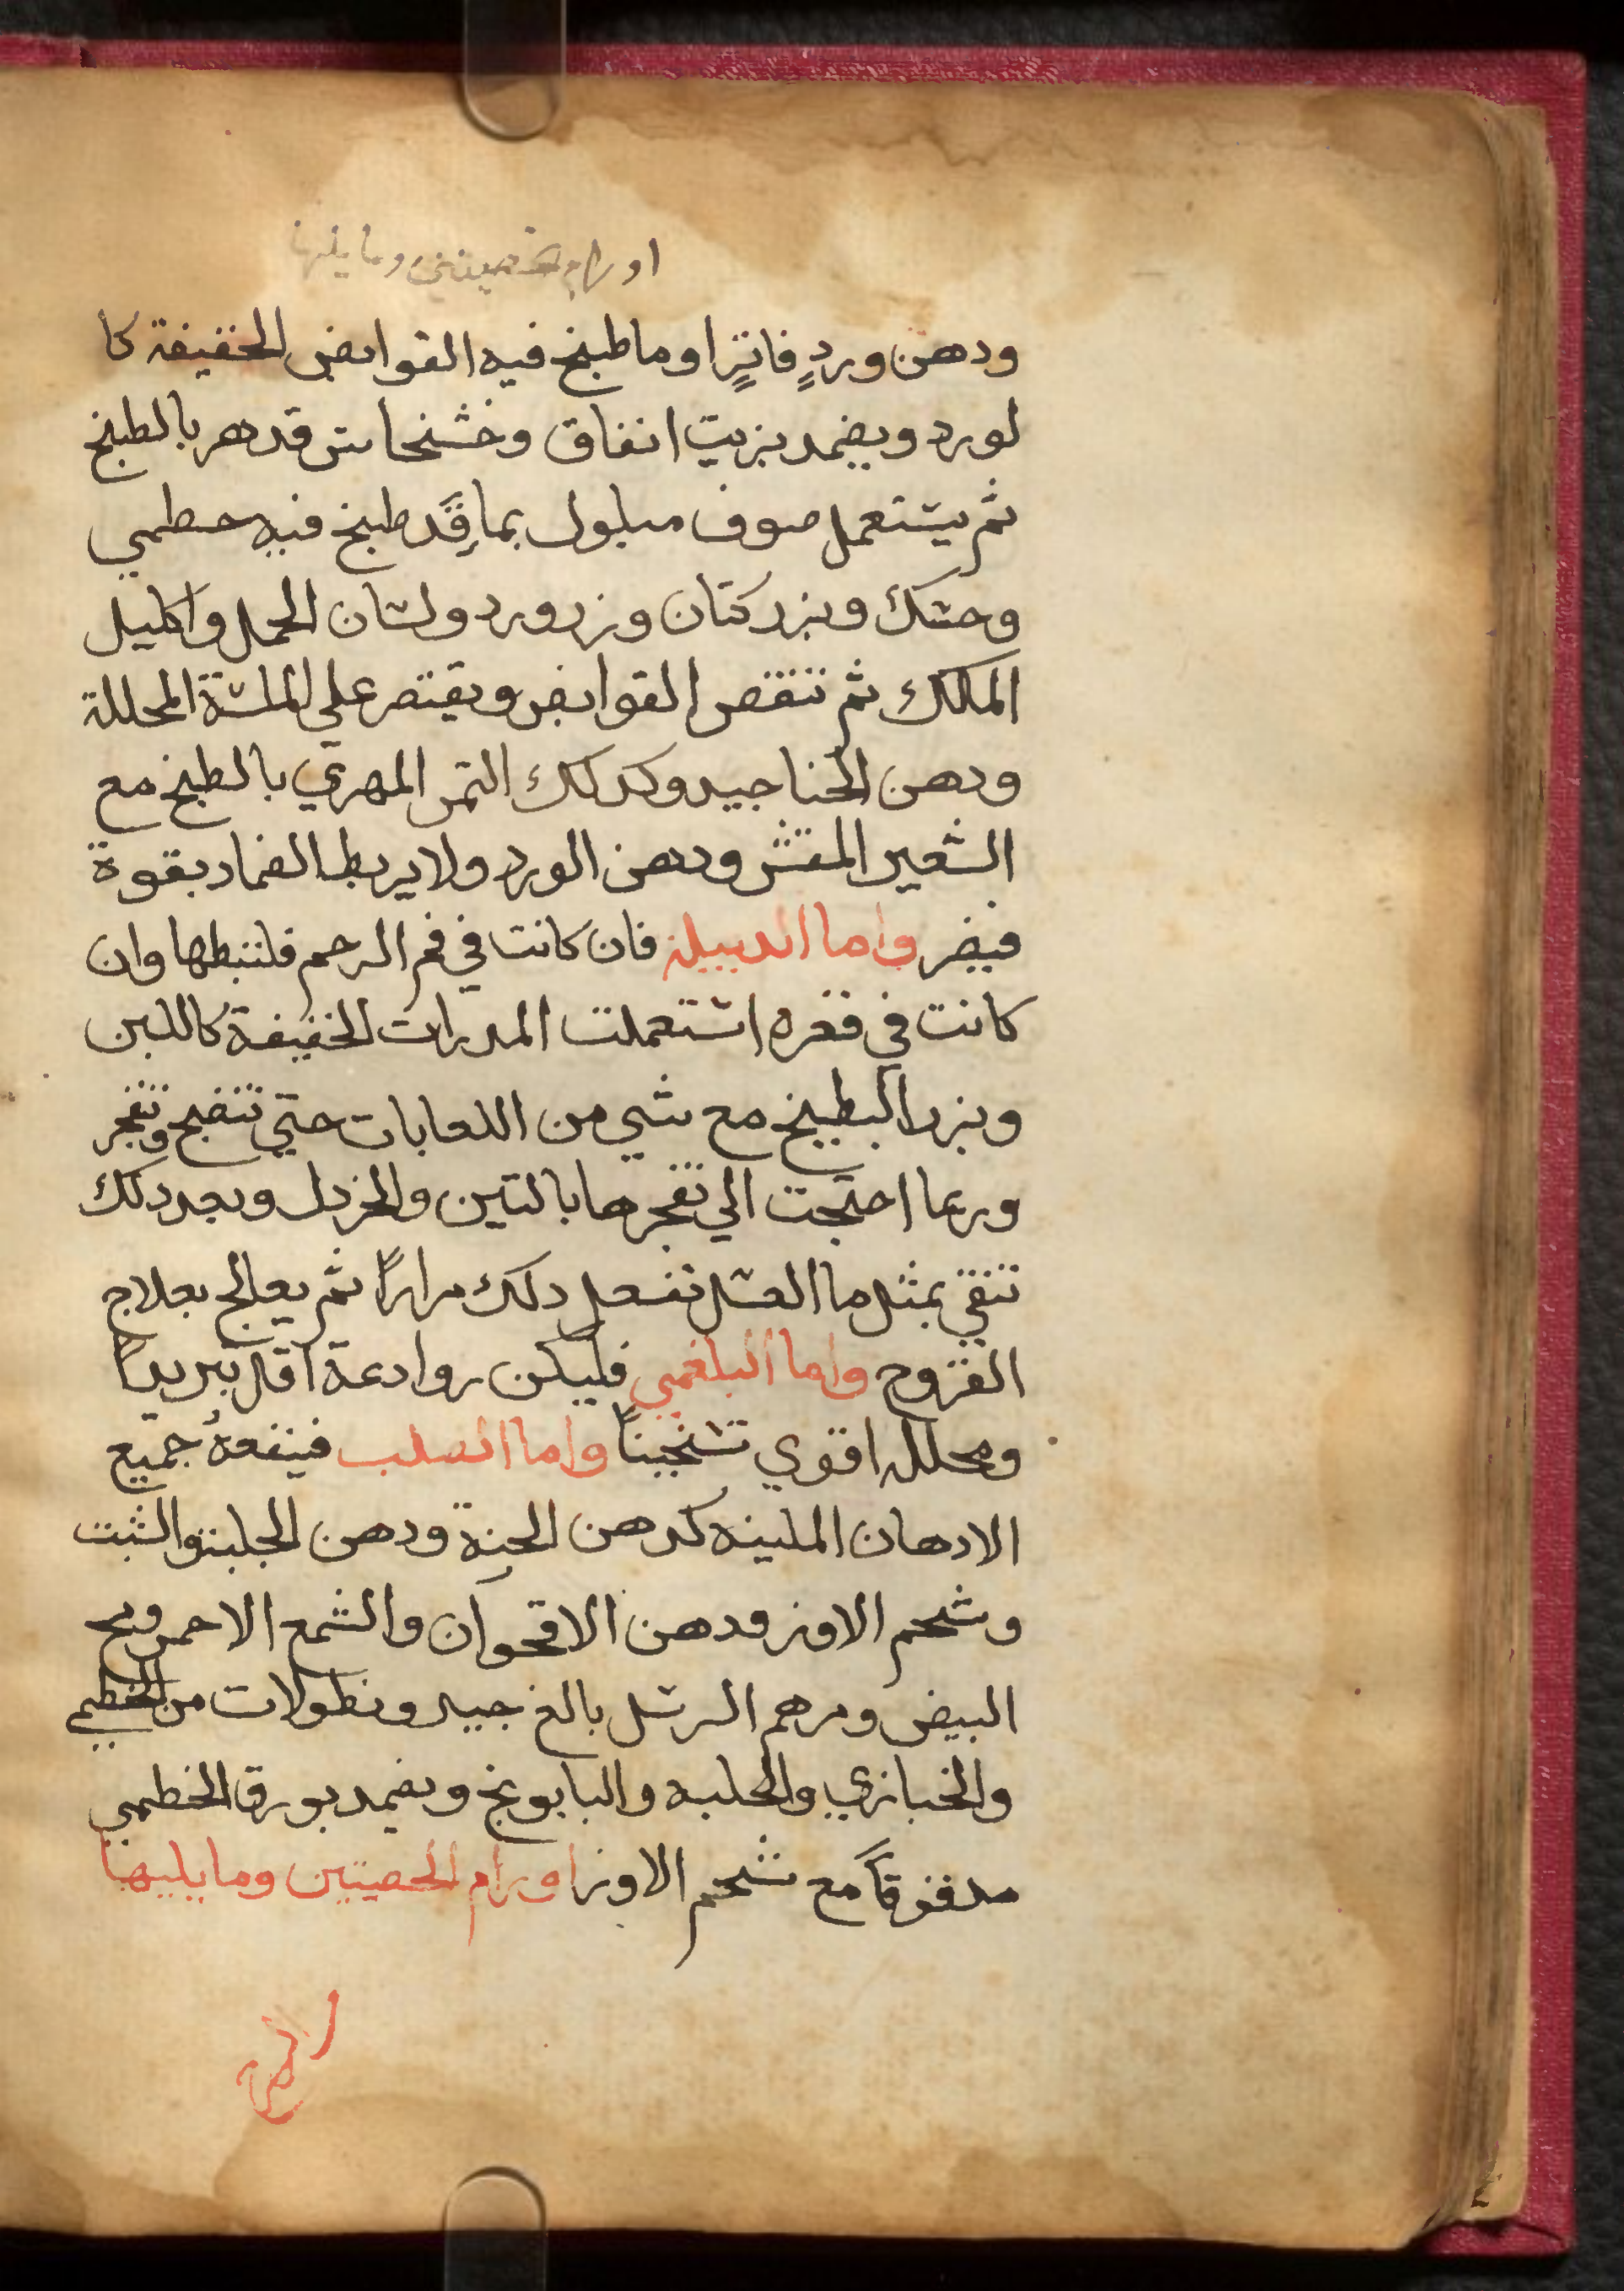 اورام خصيتين وما يليها
ودهن وردٍ فاترٍ او ما طبخ فيه القوابض الخفيفة كا
لورد ويضمد بزيت انفاق وخشخاش قد هر بالطبخ
ثم يستعمل صوف مبلول بما قَد طبخ فيه خطمي
وحسك وبزر كتان وزر ورد ولسان الحمل واكليل
الملك ثم تنقص القوابض ويقتصر على الملينة المحللة
ودهن الحنا جيد وكدلك التمر المهري بالطبخ مع
الشعير المقشر ودهن الورد ولا يربط الضماد بقوة
فيضر واما الدبيلة فان كانت في فم الرحم فلتبطها وان
كانت في قعره استعملت المدرات الخفيفة كاللبن
وبزر البطيخ مع شي من اللعابات حتي تنضج وتنفجر
وربما احتجت الي تفجرها بالتين والخردل وبعد دلك
تنقي بمثل ما العسل تفعل دلك مرارًا ثم يعالج بعلاج
القروح واما البلغمي فليكن روادعة اقل تبريدًا
ومحلله اقوي تسخينًا واما الصلب فينفعهُ جميع
الادهان الملينه كدهن الحنة ودهن الحلبة والشبت
وشحم الاوز ودهن الاقحوان والشمع الاحمر ومح
البيض ومرهم الرسل بالغ جيد ونطولات من الخطمي
والخبازي والحلبه والبابونج ويضمد بورق الخطمي
مدقوقًا مع شحم الاوز اورام الخصيتين وما يليها